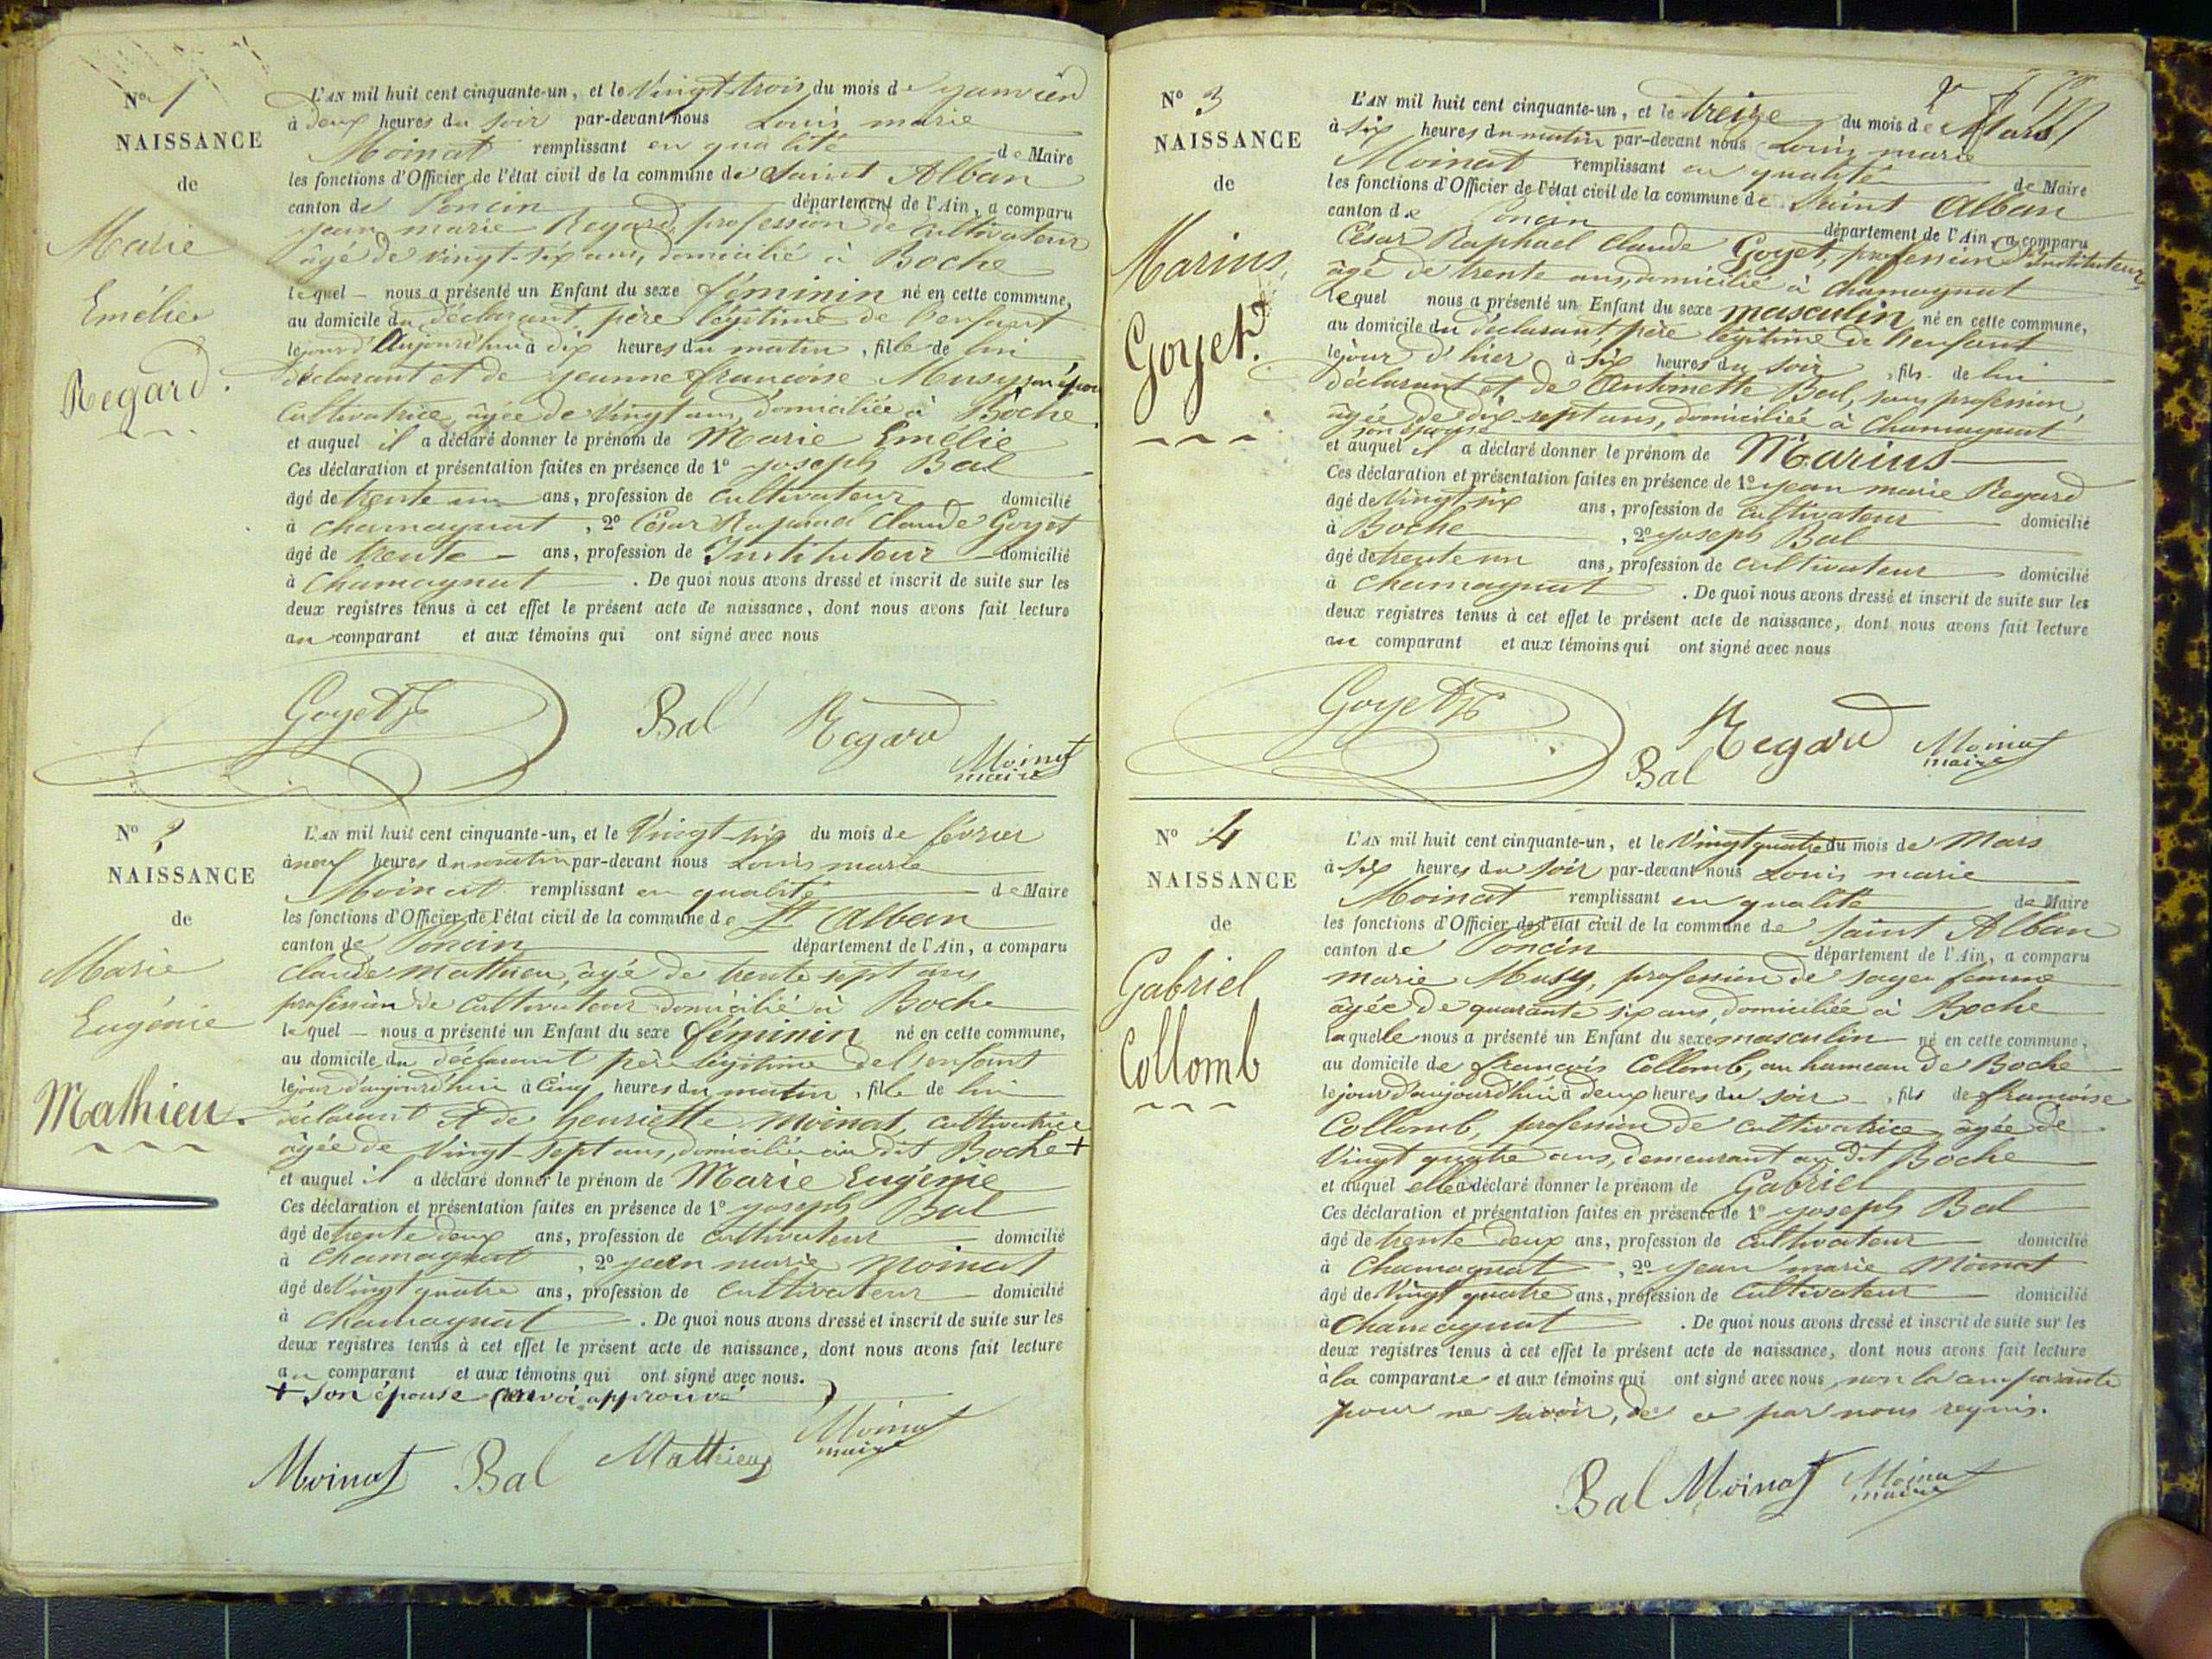 No 1
NAISSANCE
de
Marie
Emélie
Regard.
L'AN mil huit cent cinquante-un, et le Vingt-trois du mois de janvier
à deux heures du soir par-devant nous Louis marie
Moinat remplissant en qualité de Maire
les fonctions d'Officier de l'état civil de la commune de Saint Alban
canton de Poncin département de l'Ain, a comparu
jean marie Regard, profession de cultivateur
âgé de vingt-six ans, domicilié à Boche
lequel — nous a présenté un Enfant du sexe féminin né en cette commune,
au domicile du déclarant père légitime de l'enfant
le jour d'aujourd'hui à dix heures du matin, fille de lui
déclarant et de jeanne françoise Musy, son épouse
Cultivatrice, âgée de Vingt ans, domiciliée à Boche.
et auquel il a déclaré donner le prénom de Marie Emélie
Ces déclaration et présentation faites en présence de 1o joseph Bal
âgé de trente un ans, profession de cultivateur domicilié
à chamagnat, 2o César Raphael Claude Goyet
âgé de trente — ans, profession de Instituteur domicilié
à Chamagnat. De quoi nous avons dressé et inscrit de suite sur les
deux registres tenus à cet effet le présent acte de naissance, dont nous avons fait lecture
au comparant et aux témoins qui ont signé avec nous
Goyet Bal Regard
Moinat
maire
No 2
NAISSANCE
de
Marie
Eugénie
Mathieu.
L'AN mil huit cent cinquante-un, et le Vingt-six du mois de février
à neuf heures du matin par-devant nous Louis marie
Moinat remplissant en qualité de Maire
les fonctions d'Officier de l'état civil de la commune de St Alban
canton de Poncin département de l'Ain, a comparu
Claude Mathieu, âgé de trente sept ans
profession de cultivateur domicilié à Boche
lequel — nous a présenté un Enfant du sexe féminin né en cette commune,
au domicile du déclarant père légitime de l'enfant
le jour d'aujourd'hui à Cinq heures du matin, fille de lui
déclarant et de henriette Moinat, cultivatrice
âgée de Vingt-sept ans, domiciliée au dit Boche +
et auquel il a déclaré donner le prénom de Marie Eugénie
Ces déclaration et présentation faites en présence de 1o joseph Bal
âgé de trente deux ans, profession de cultivateur domicilié
à Chamagnat, 2o jean marie Moinat
âgé de Vingt quatre ans, profession de cultivateur domicilié
à Chamagnat. De quoi nous avons dressé et inscrit de suite sur les
deux registres tenus à cet effet le présent acte de naissance, dont nous avons fait lecture
au comparant et aux témoins qui ont signé avec nous.
+ son épouse (renvoi approuvé)
Moinat Bal Mathieu Moinat
maire
No 3
NAISSANCE
de
Marius
Goyet.
L'AN mil huit cent cinquante-un, et le treize du mois de Mars
à six heures du matin par-devant nous Louis marie
Moinat remplissant en qualité de Maire
les fonctions d'Officier de l'état civil de la commune de Saint Alban
canton de Poncin département de l'Ain, a comparu
César Raphael Claude Goyet, profession d'Instituteur
âgé de trente ans, domicilié à Chamagnat
lequel nous a présenté un Enfant du sexe masculin né en cette commune,
au domicile du déclarant, père légitime de l'enfant
le jour d'hier à six heures du soir, fils de lui
déclarant et de Antoinette Bal, sans profession,
âgée de dix-sept ans, domiciliée à Chamagnat
son épouse
et auquel il a déclaré donner le prénom de Marius
Ces déclaration et présentation faites en présence de 1o jean marie Regard
âgé de Vingt six ans, profession de cultivateur domicilié
à Boche, 2o joseph Bal
âgé de trente un ans, profession de cultivateur domicilié
à Chamagnat. De quoi nous avons dressé et inscrit de suite sur les
deux registres tenus à cet effet le présent acte de naissance, dont nous avons fait lecture
au comparant et aux témoins qui ont signé avec nous
Goyet Bal Regard Moinat
maire
No 4
NAISSANCE
de
Gabriel
Collomb
L'AN mil huit cent cinquante-un, et le Vingt quatre du mois de Mars
à six heures du soir par-devant nous Louis marie
Moinat remplissant en qualité de Maire
les fonctions d'Officier de l'état civil de la commune de Saint Alban
canton de Poncin département de l'Ain, a comparu
marie Musy, profession de sage femme
âgée de quarante six ans, domiciliée à Boche
laquelle nous a présenté un Enfant du sexe masculin né en cette commune,
au domicile de françois Collomb, au hameau de Boche
le jour d'aujourd'hui à deux heures du soir, fils de françoise
Collomb, profession de cultivatrice, âgée de
Vingt quatre ans, demeurant au dit Boche
et auquel elle a déclaré donner le prénom de Gabriel
Ces déclaration et présentation faites en présence de 1o joseph Bal
âgé de trente deux ans, profession de cultivateur domicilié
à Chamagnat, 2o jean marie Moinat
âgé de Vingt quatre ans, profession de cultivateur domicilié
à Chamagnat. De quoi nous avons dressé et inscrit de suite sur les
deux registres tenus à cet effet le présent acte de naissance, dont nous avons fait lecture
à la comparante et aux témoins qui ont signé avec nous, non la comparante
pour ne savoir, de ce par nous requis.
Bal Moinat Moinat
maire